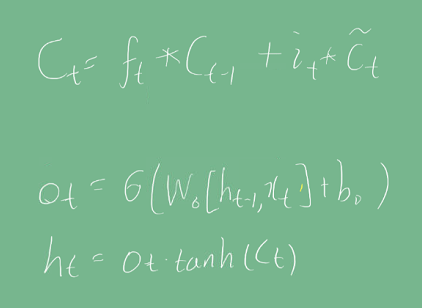 C_t = f_t * C_{t-1} + i_t * C̃_t
o_t = σ(W_o[h_{t-1}, x_t] + b_o)
h_t = o_t · tanh(C_t)